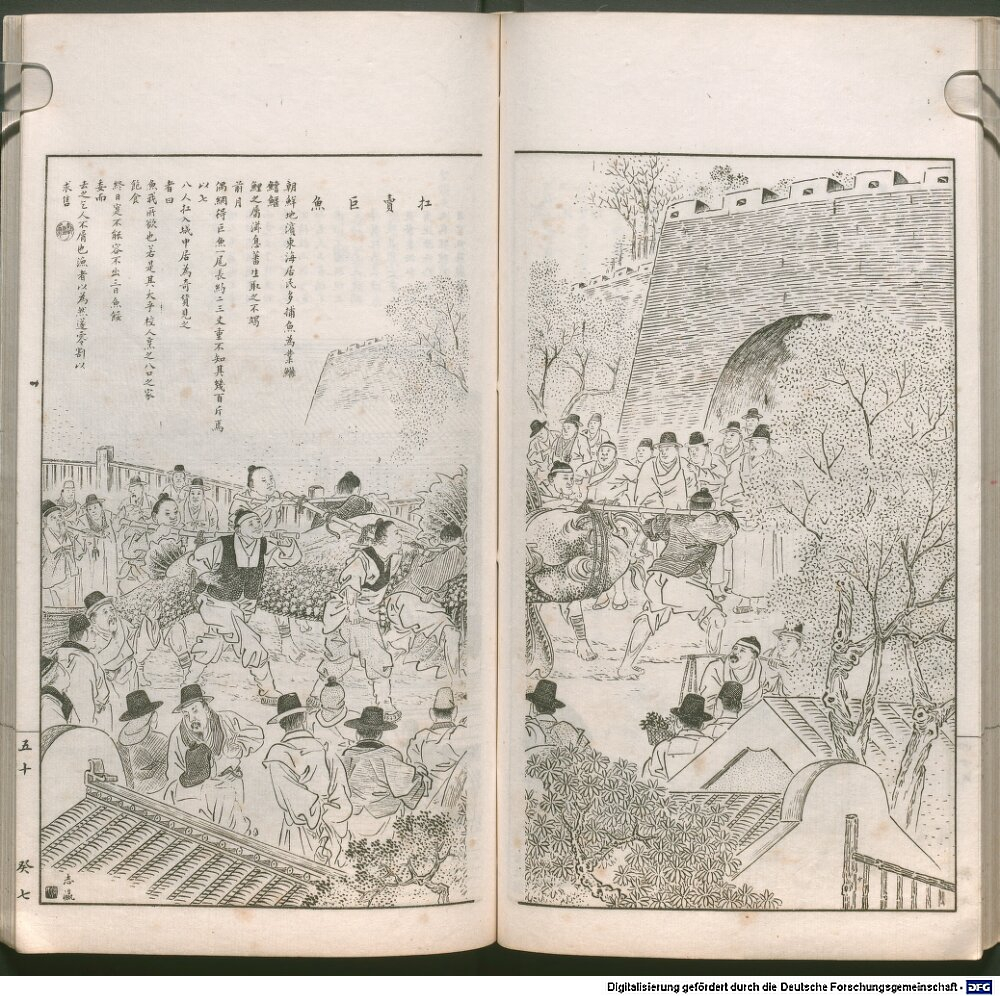 扛賣巨魚
朝鮮地濱東海居民多捕魚為業鱗
鱣鰋
鯉之屬滋息蕃生取之不竭
前月
偶網得巨魚一尾長約二三丈重不知其幾百斤爲
以七
八人扛入城中居為奇貨見之
者曰
魚我所欲也若是其大乎校人烹之八口之家
飽食
終日寔不能容不出三日魚餒
委而
去之乞人不屑也漁者以為然遂零割以
求售
志瀛
五十
癸七
Digitalisierung gefördert durch die Deutsche Forschungsgemeinschaft - DFG